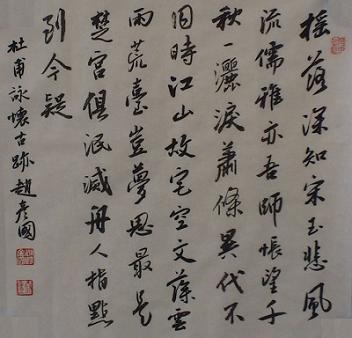 搖落深知宋玉悲風
流儒雅亦吾師悵望千
秋一灑淚蕭條異代不
同時江山故宅空文藻雲
雨荒臺豈夢思最是
楚宮俱泯滅舟人指點
到今疑
杜甫詠懷古跡趙彥國